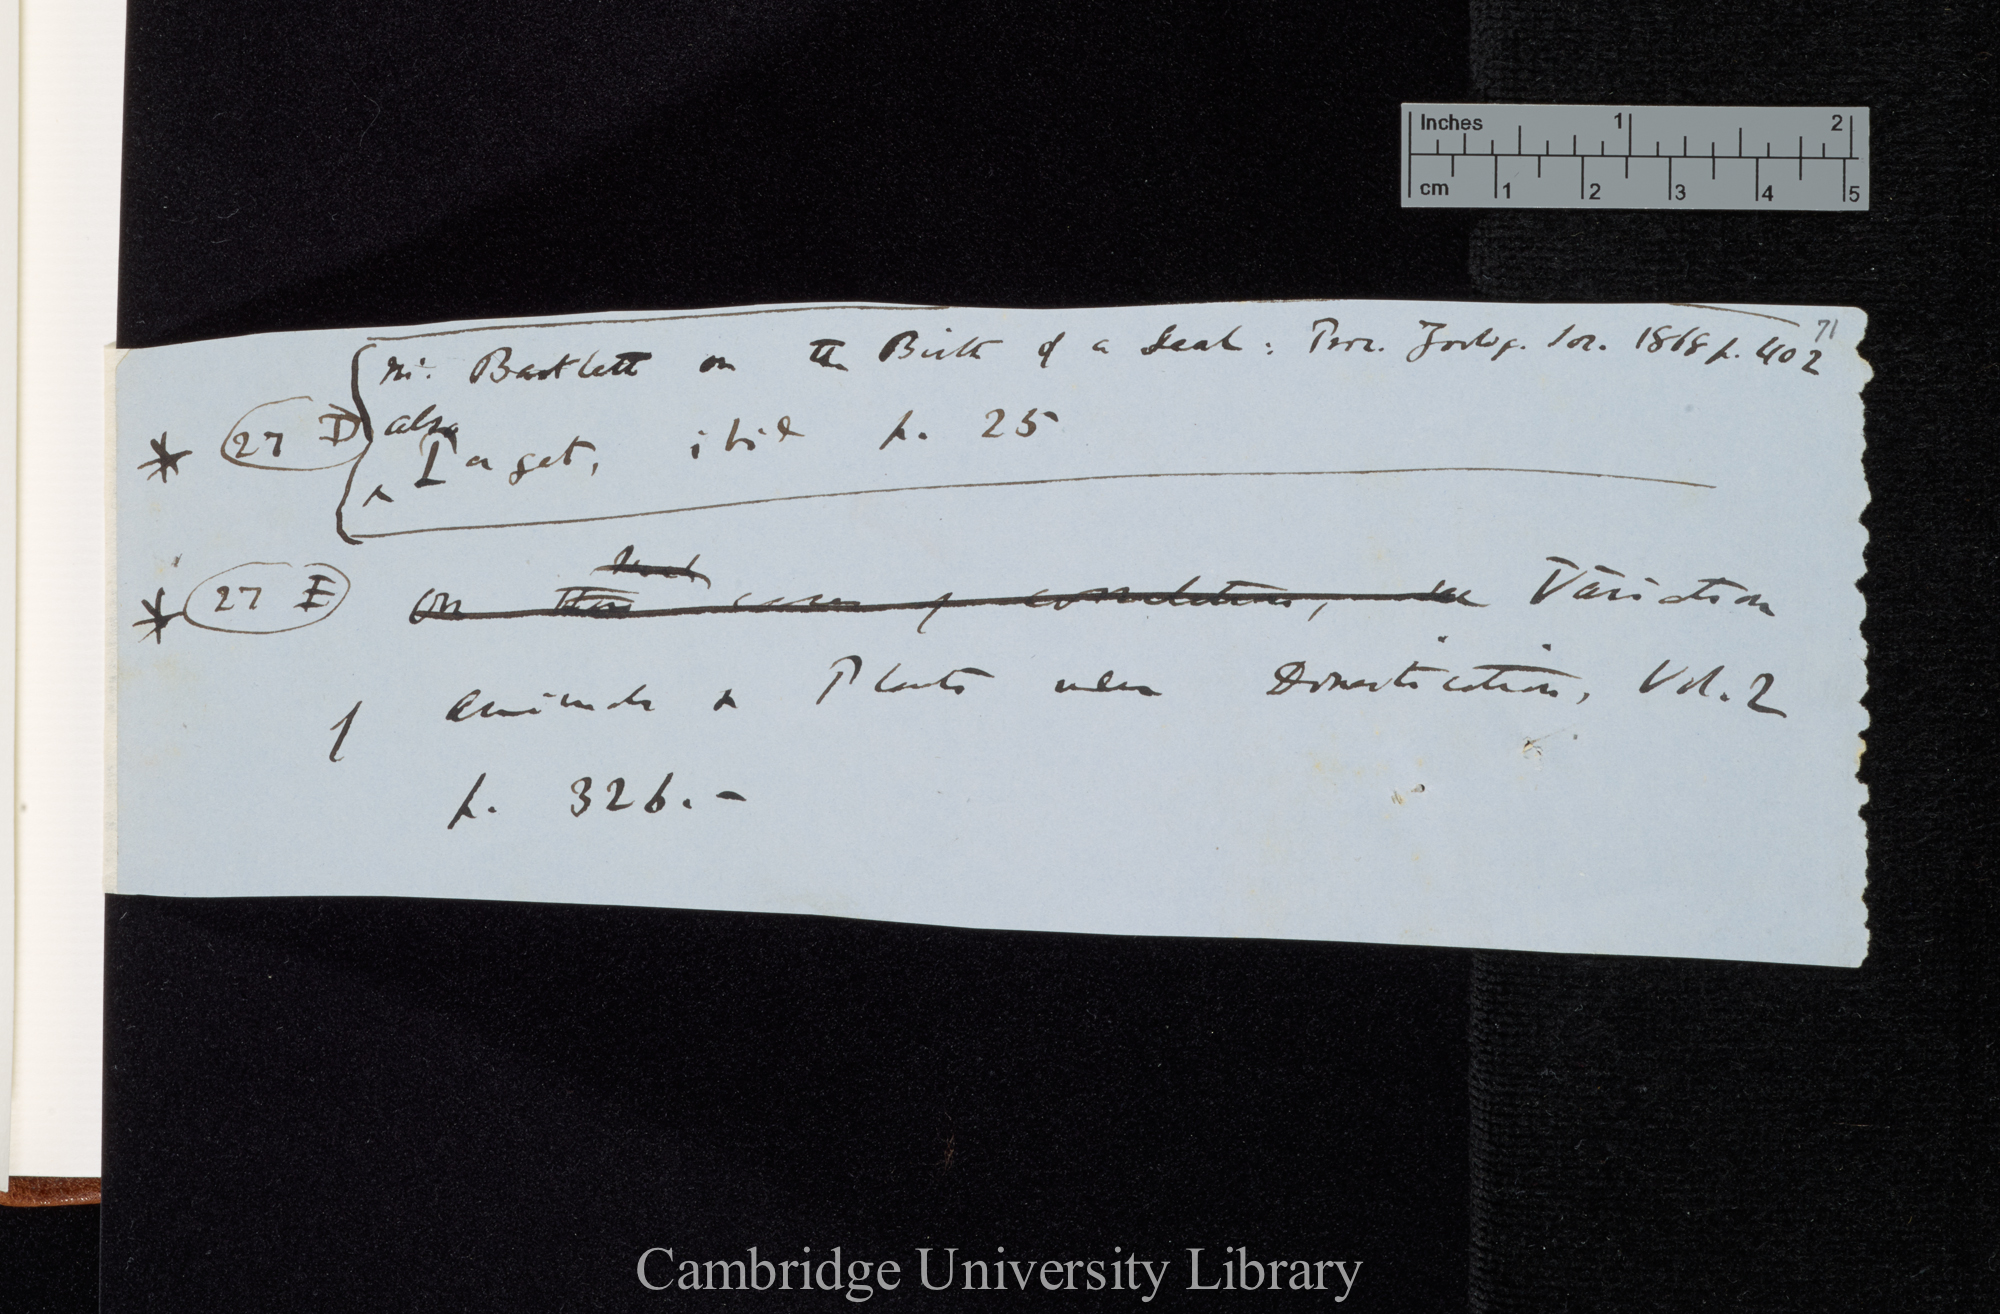 Inches 1 2
cm 1 2 3 4 5
71
Mr. Bartlett on the Birth of a Seal: Proc. Zoolog. Soc. 1868 p. 402
* 27 D
also
^ Target, ibid p. 25
such
* 27 E On these cases of correlation, see Variation
of animals & Plants under Domestication, Vol. 2
p. 326. –
Cambridge University Library